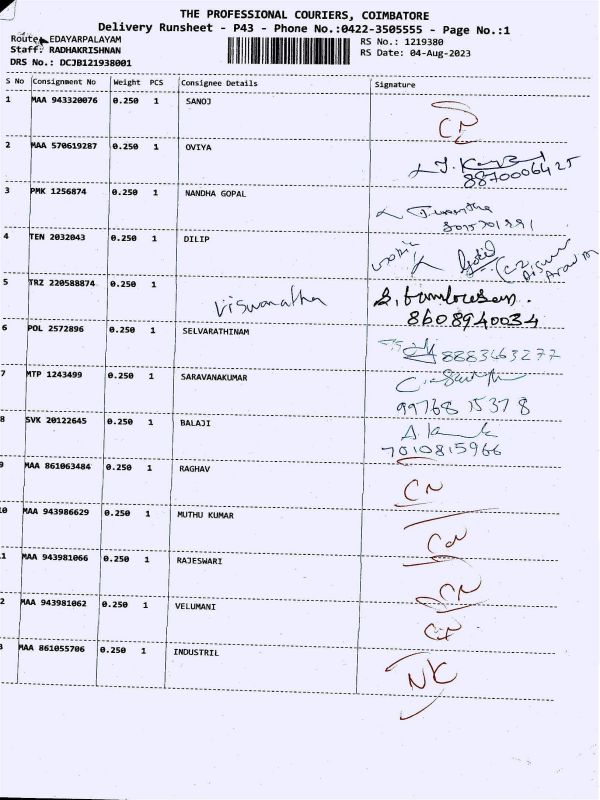 THE PROFESSIONAL COURIERS, COIMBATORE
Delivery Runsheet - P43 - Phone No.:0422-3505555 - Page No.:1
Route: EDAYARPALAYAM
RS No.: 1219380
Staff: RADHAKRISHNAN
RS Date: 04-Aug-2023
DRS No.: DCJB121938001
S No Consignment No Weight PCS Consignee Details Signature
1 MAA 943320076 0.250 1 SANOJ
2 MAA 570619287 0.250 1 OVIYA
8870006425
3 PMK 1256874 0.250 1 NANDHA GOPAL
4 TEN 2032043 0.250 1 DILIP
5 TRZ 220588874 0.250 1
Viswanatha
8608940034
6 POL 2572896 0.250 1 SELVARATHINAM
8883463277
7 MTP 1243499 0.250 1 SARAVANAKUMAR
99768 15378
8 SVK 20122645 0.250 1 BALAJI
7010815966
9 MAA 861063484 0.250 1 RAGHAV
CN
10 MAA 943986629 0.250 1 MUTHU KUMAR
1 MAA 943981066 0.250 1 RAJESWARI
CN
2 MAA 943981062 0.250 1 VELUMANI
CN
3 MAA 861055706 0.250 1 INDUSTRIL
NC